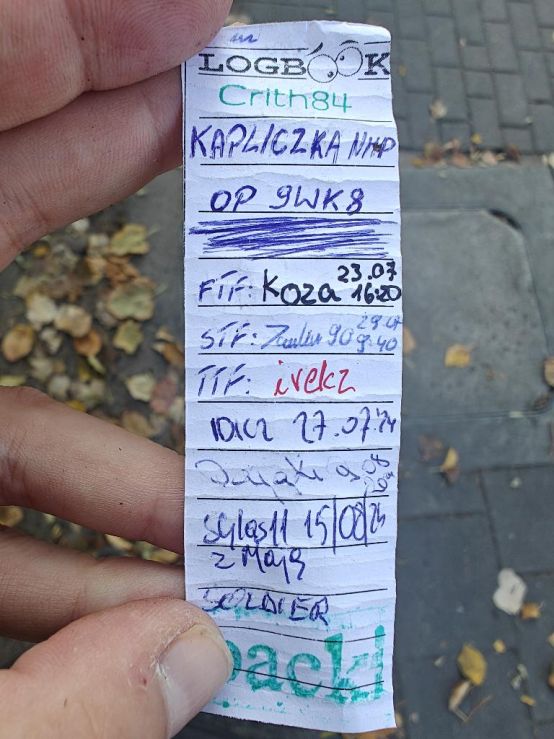 LOGBOOK
Crith84
KAPLICZKA NMP
OP 9WK8
FTF: Koza 23.07 16:20
STF: 90 9:40
TTF: irekz
27.07.24
9.08
sglas11 15/08/24
z Mają
SOLDIER
packl